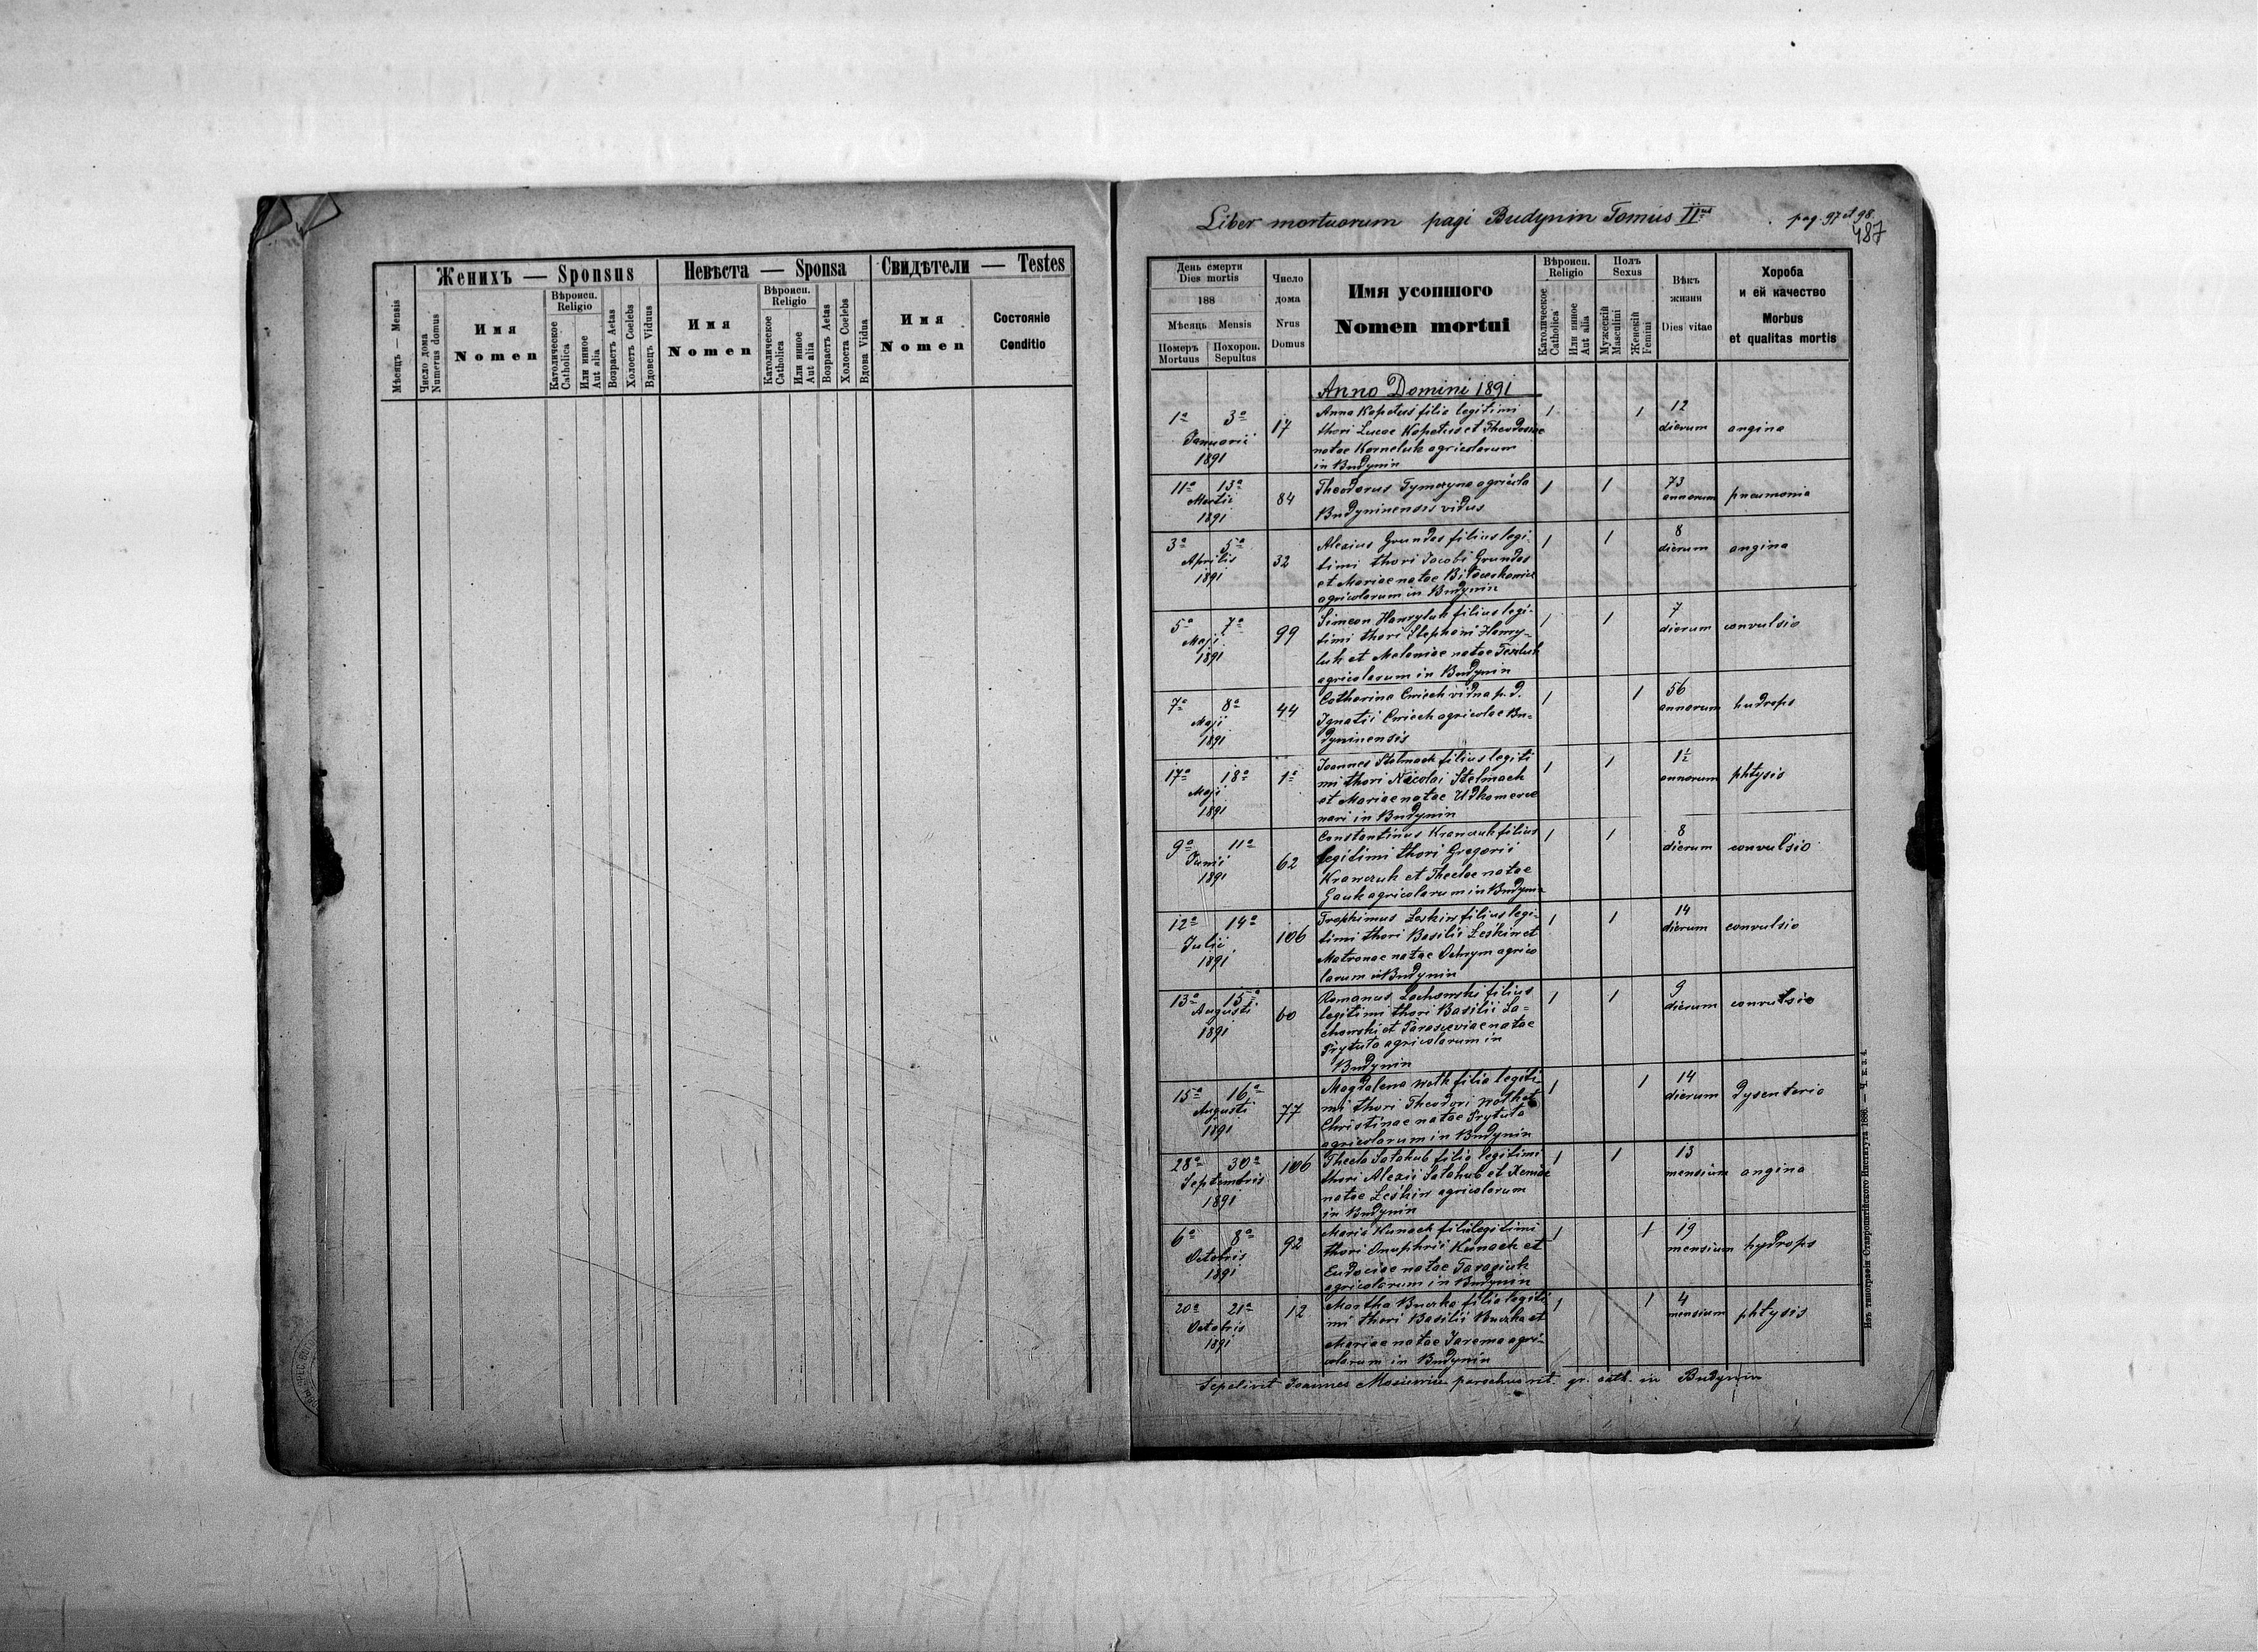 Женихъ — Sponsus
Невѣста — Sponsa
Свидѣтели — Testes
Мѣсяцъ — Mensis
Число дома
Numerus domus
Имя
Nomen
Вѣроисп.
Religio
Католическое
Catholica
Или инное
Aut alia
Возрастъ Aetas
Холостъ Coelebs
Вдовецъ Viduus
Имя
Nomen
Вѣроисп.
Religio
Католическое
Catholica
Или инное
Aut alia
Возрастъ Aetas
Холоста Coelebs
Вдова Vidua
Имя
Nomen
Состояніе
Conditio
Liber mortuorum pagi Budynin Tomus II
pag. 97 et 98.
487
День смерти
Dies mortis
188
Мѣсяцъ Mensis
Померъ
Mortuus
Похорон.
Sepultus
Число
дома
Nrus
Domus
Имя усопшого
Nomen mortui
Вѣроисп.
Religio
Католическое
Catholica
Или инное
Aut alia
Полъ
Sexus
Мужескій
Masculini
Женскій
Femini
Вѣкъ
жизни
Dies vitae
Хороба
и ей качество
Morbus
et qualitas mortis
Anno Domini 1891
1a 3a
Januarii
1891
17
Anna Kopetus filia legitimi
thori Lucae Kopetus et Theodosiae
natae Korneluk agricolarum
in Budynin
1 1
12
dierum
angina
11a 13a
Martii
1891
84
Theodorus Tymczyna agricola
Budyninensis vidus
1 1
73
annorum
pneumonia
3a 5a
Aprilis
1891
32
Alexius Grundas filius legi-
timi thori Jacobi Grundas
et Mariae natae
agricolarum in Budynin
1 1
8
dierum
angina
5a 7a
Maji
1891
99
Simeon Hawryluk filius legi-
timi thori Stephani Hawry-
luk et Melaniae natae
agricolarum in Budynin
1 1
7
dierum
convulsio
7a 8a
Maji
1891
44
Catharina Cwiech vidua p. d.
Ignatii Cwiech agricolae Bu-
dyninensis
1 1
56
annorum
hudrops
17a 18a
Maji
1891
1a
Joannes Stelmach filius legiti
mi thori Nicolai Stelmach
et Mariae natae
nari in Budynin
1 1
1½
annorum
phtysis
9a 11a
Junii
1891
62
Constantinus Krawczuk filius
legitimi thori Gregorii
Krawczuk et Theclae natae
Gauk agricolarum in Budynin
1 1
8
dierum
convulsio
12a 14a
Julii
1891
106
Trophimus Leskiw filius legi-
timi thori Basilii Leskiw et
Matronae natae Ochrym agrico
larum in Budynin
1 1
14
dierum
convulsio
13a 15a
Augusti
1891
60
Romanus Lachowski filius
legitimi thori Basilii La=
chowski et Parasceviae natae
Prytuła agricolarum in
Budynin
1 1
9
dierum
convulsio
15a 16a
Augusti
1891
77
Magdalena Woth filia legiti-
mi thori Theodori Woth et
Christinae natae Prytuła
agricolarum in Budynin
1 1
14
dierum
dysenteria
28a 30a
Septembris
1891
106
Thecla Sałahub filia legitimi
thori Alexii Sałahub et Xeniae
natae Leskiw agricolarum
in Budynin
1 1
13
mensium
angina
6a 8a
Octobris
1891
92
Maria Kunach filia legitimi
thori Onuphrii Kunach et
Eudociae natae Tarasiuk
agricolarum in Budynin
1 1
19
mensium
hydrops
20a 21a
Octobris
1891
12
Martha Buczko filia legiti
mi thori Basilii Buczko et
Mariae natae Jarema agri-
colarum in Budynin
1 1
4
mensium
phtysis
Sepelivit Joannes parochus rit. gr. cath. in Budynin
Изъ типографіи Ставропигійского Института 1886. — Ч. к. з. 4.